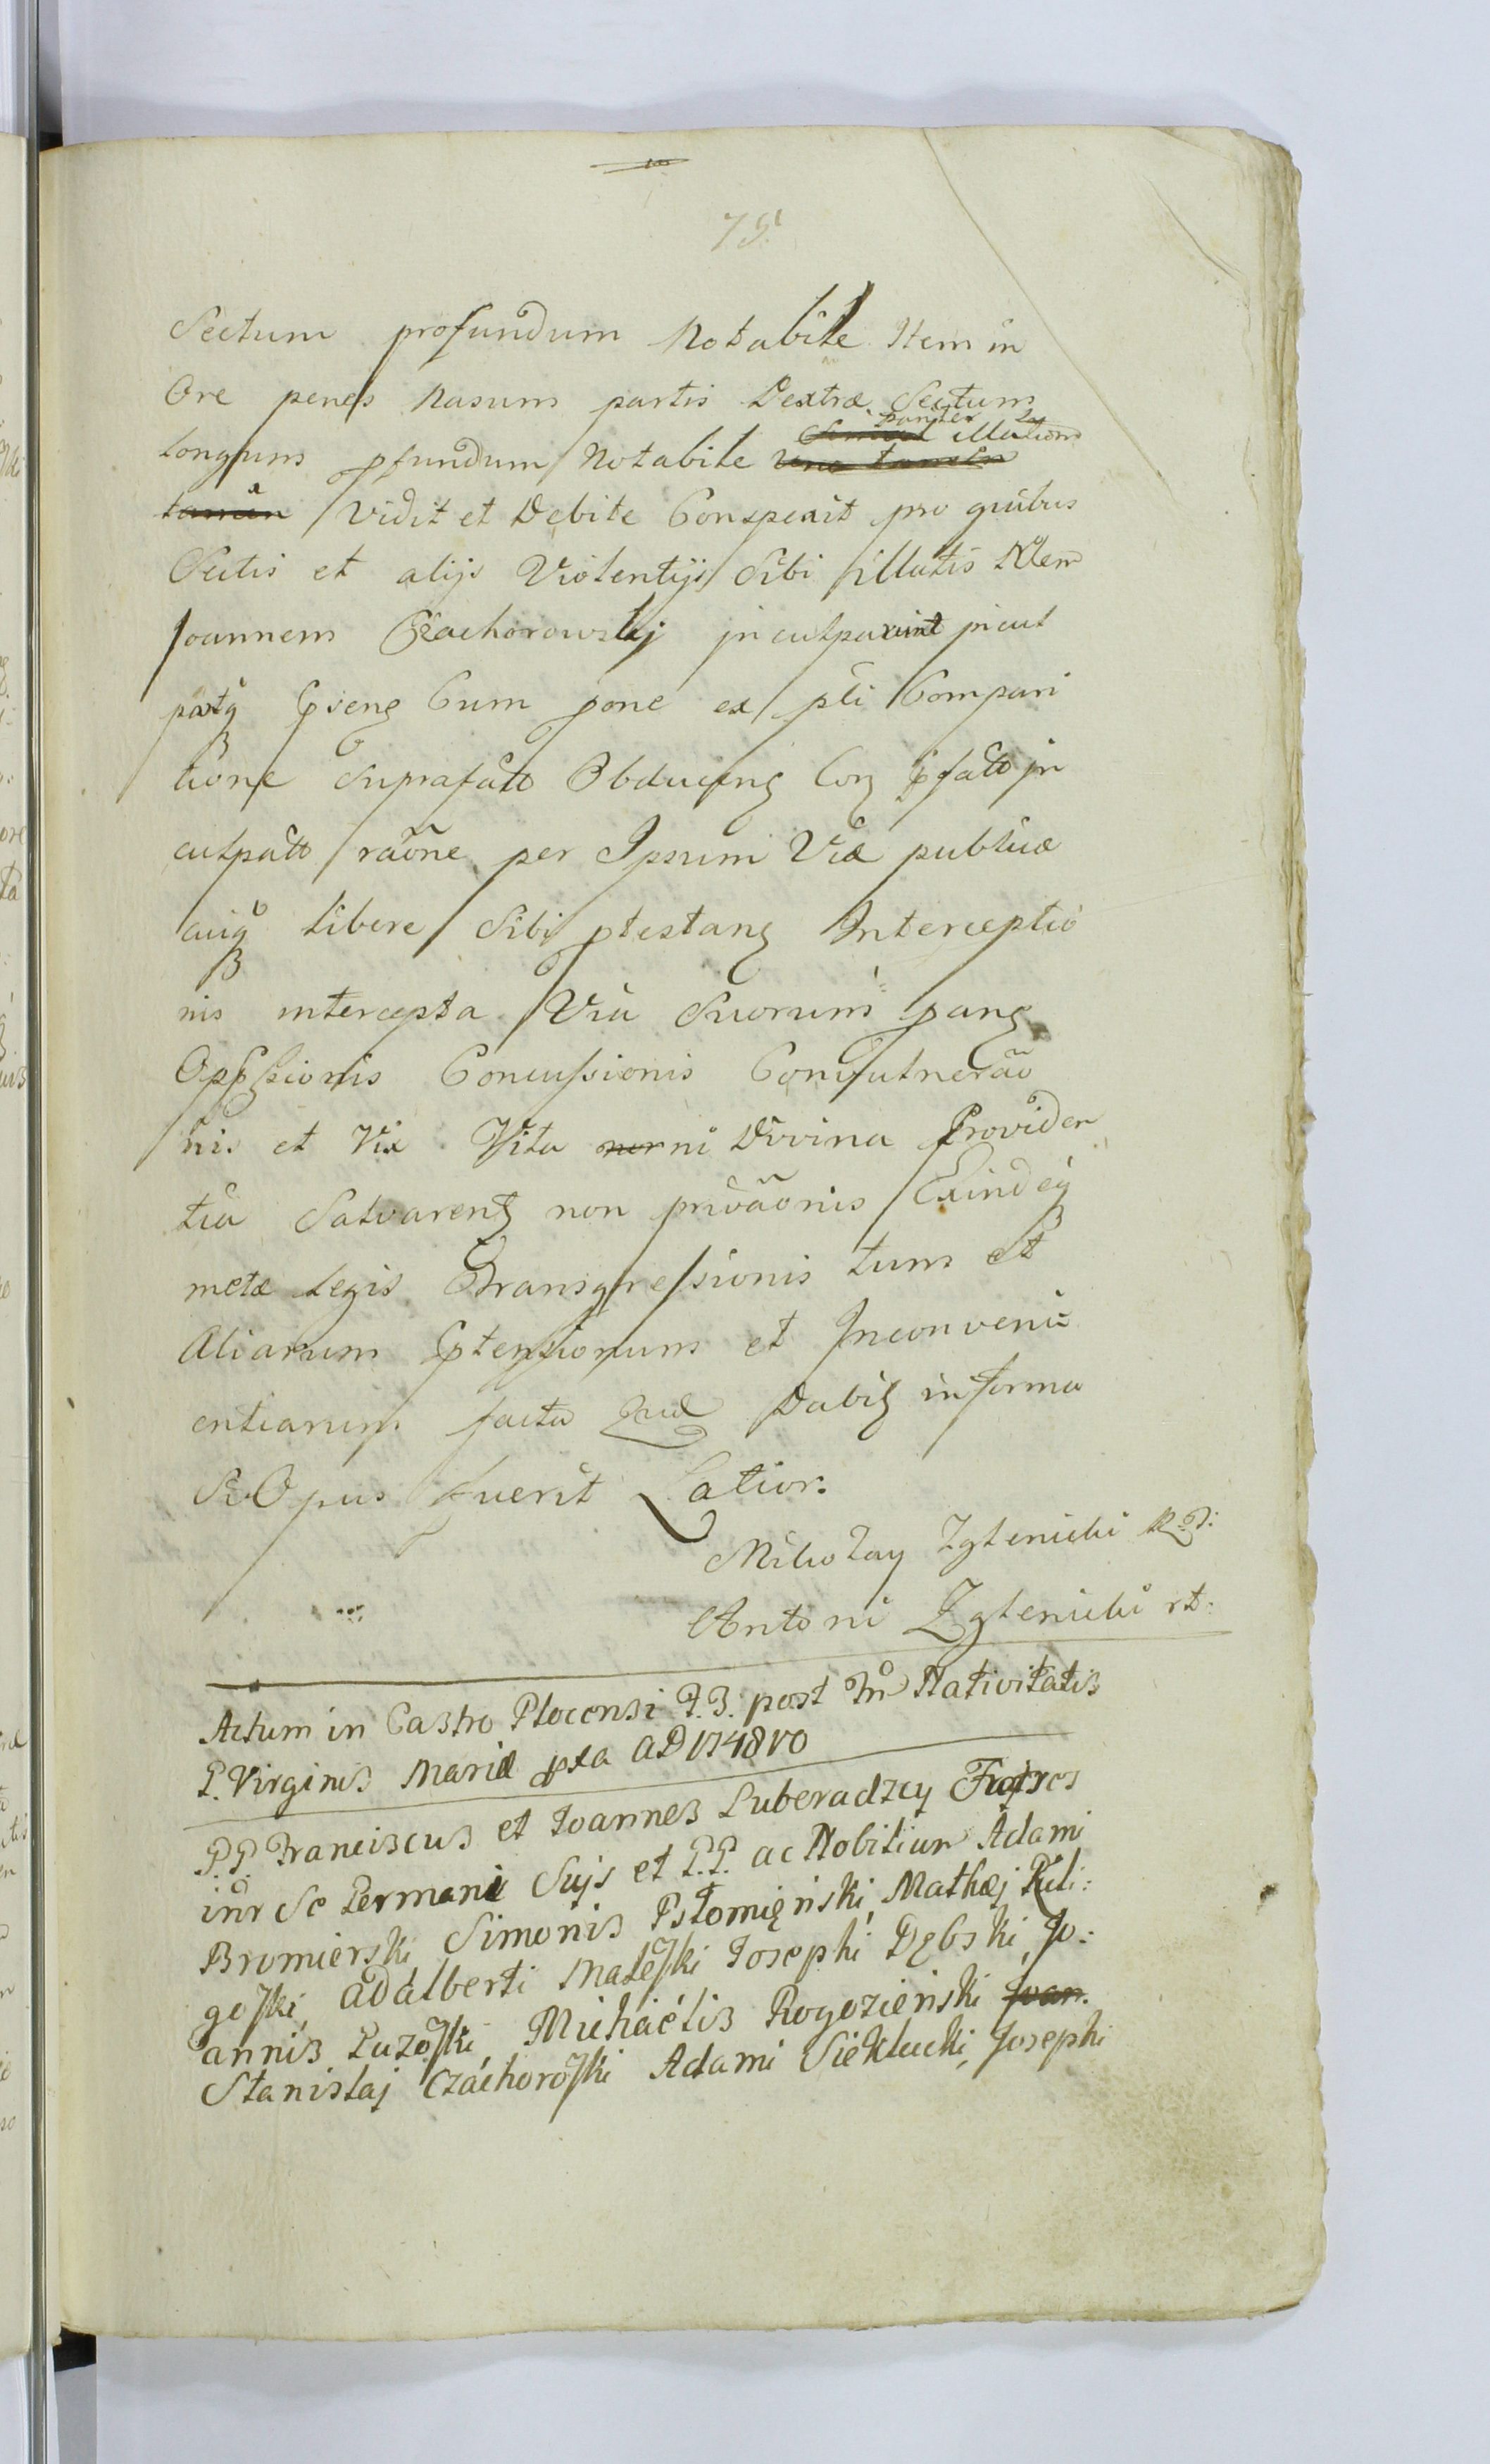 75
Sectum profundum Notabile Item in
Ore penes Nasum partis Dextræ Sectum
pariter
longum pfundum Notabile illatum
Vidit et Debite Conspexit pro quibus
Sectis et alijs Violentijs Sibi illatis Nlem
Joannem Czachorowskj jnculparunt jncul
patq Cum pone ex pñti Compari
tione Suprafatto Obducing Con pfatto jn
culpatto raõne per Ipsum Viæ publicæ
cuiq libere Sibi ptestang Interceptio
nis intercepta Via Suorum pang
Oppssionis Concussionis Convulnerão
nis et Vix Vita ni Divina Providen
tia Salvareng non privãonis Exindeq
metæ legis Transgressionis tum et
Aliarum Ptensionum et Inconveni=
entiarum facta Quæ Dabig in forma
Si Opus fuerit Latior:
Mikołay Zglenicki
Antoni Zglenicki
Actum in Castro Plocensi F. 3. post Nativitatis
B. Virginis Mariæ pxa AD 1748vo
P.P. Franciscus et Joannes Luberadzcy Fratres
intr Se Germani Suis et P.P. ac Nobilium Adami
Bromierski, Simonis Psłomięnski, Mathæj Kuli:
goski, Adalberti Malеski Josephi Dębski, Jo:
annis Luzoski, Michaelis Rogozieński Joan.
Stanislaj Czachoroski Adami Siekłucki, Josephi